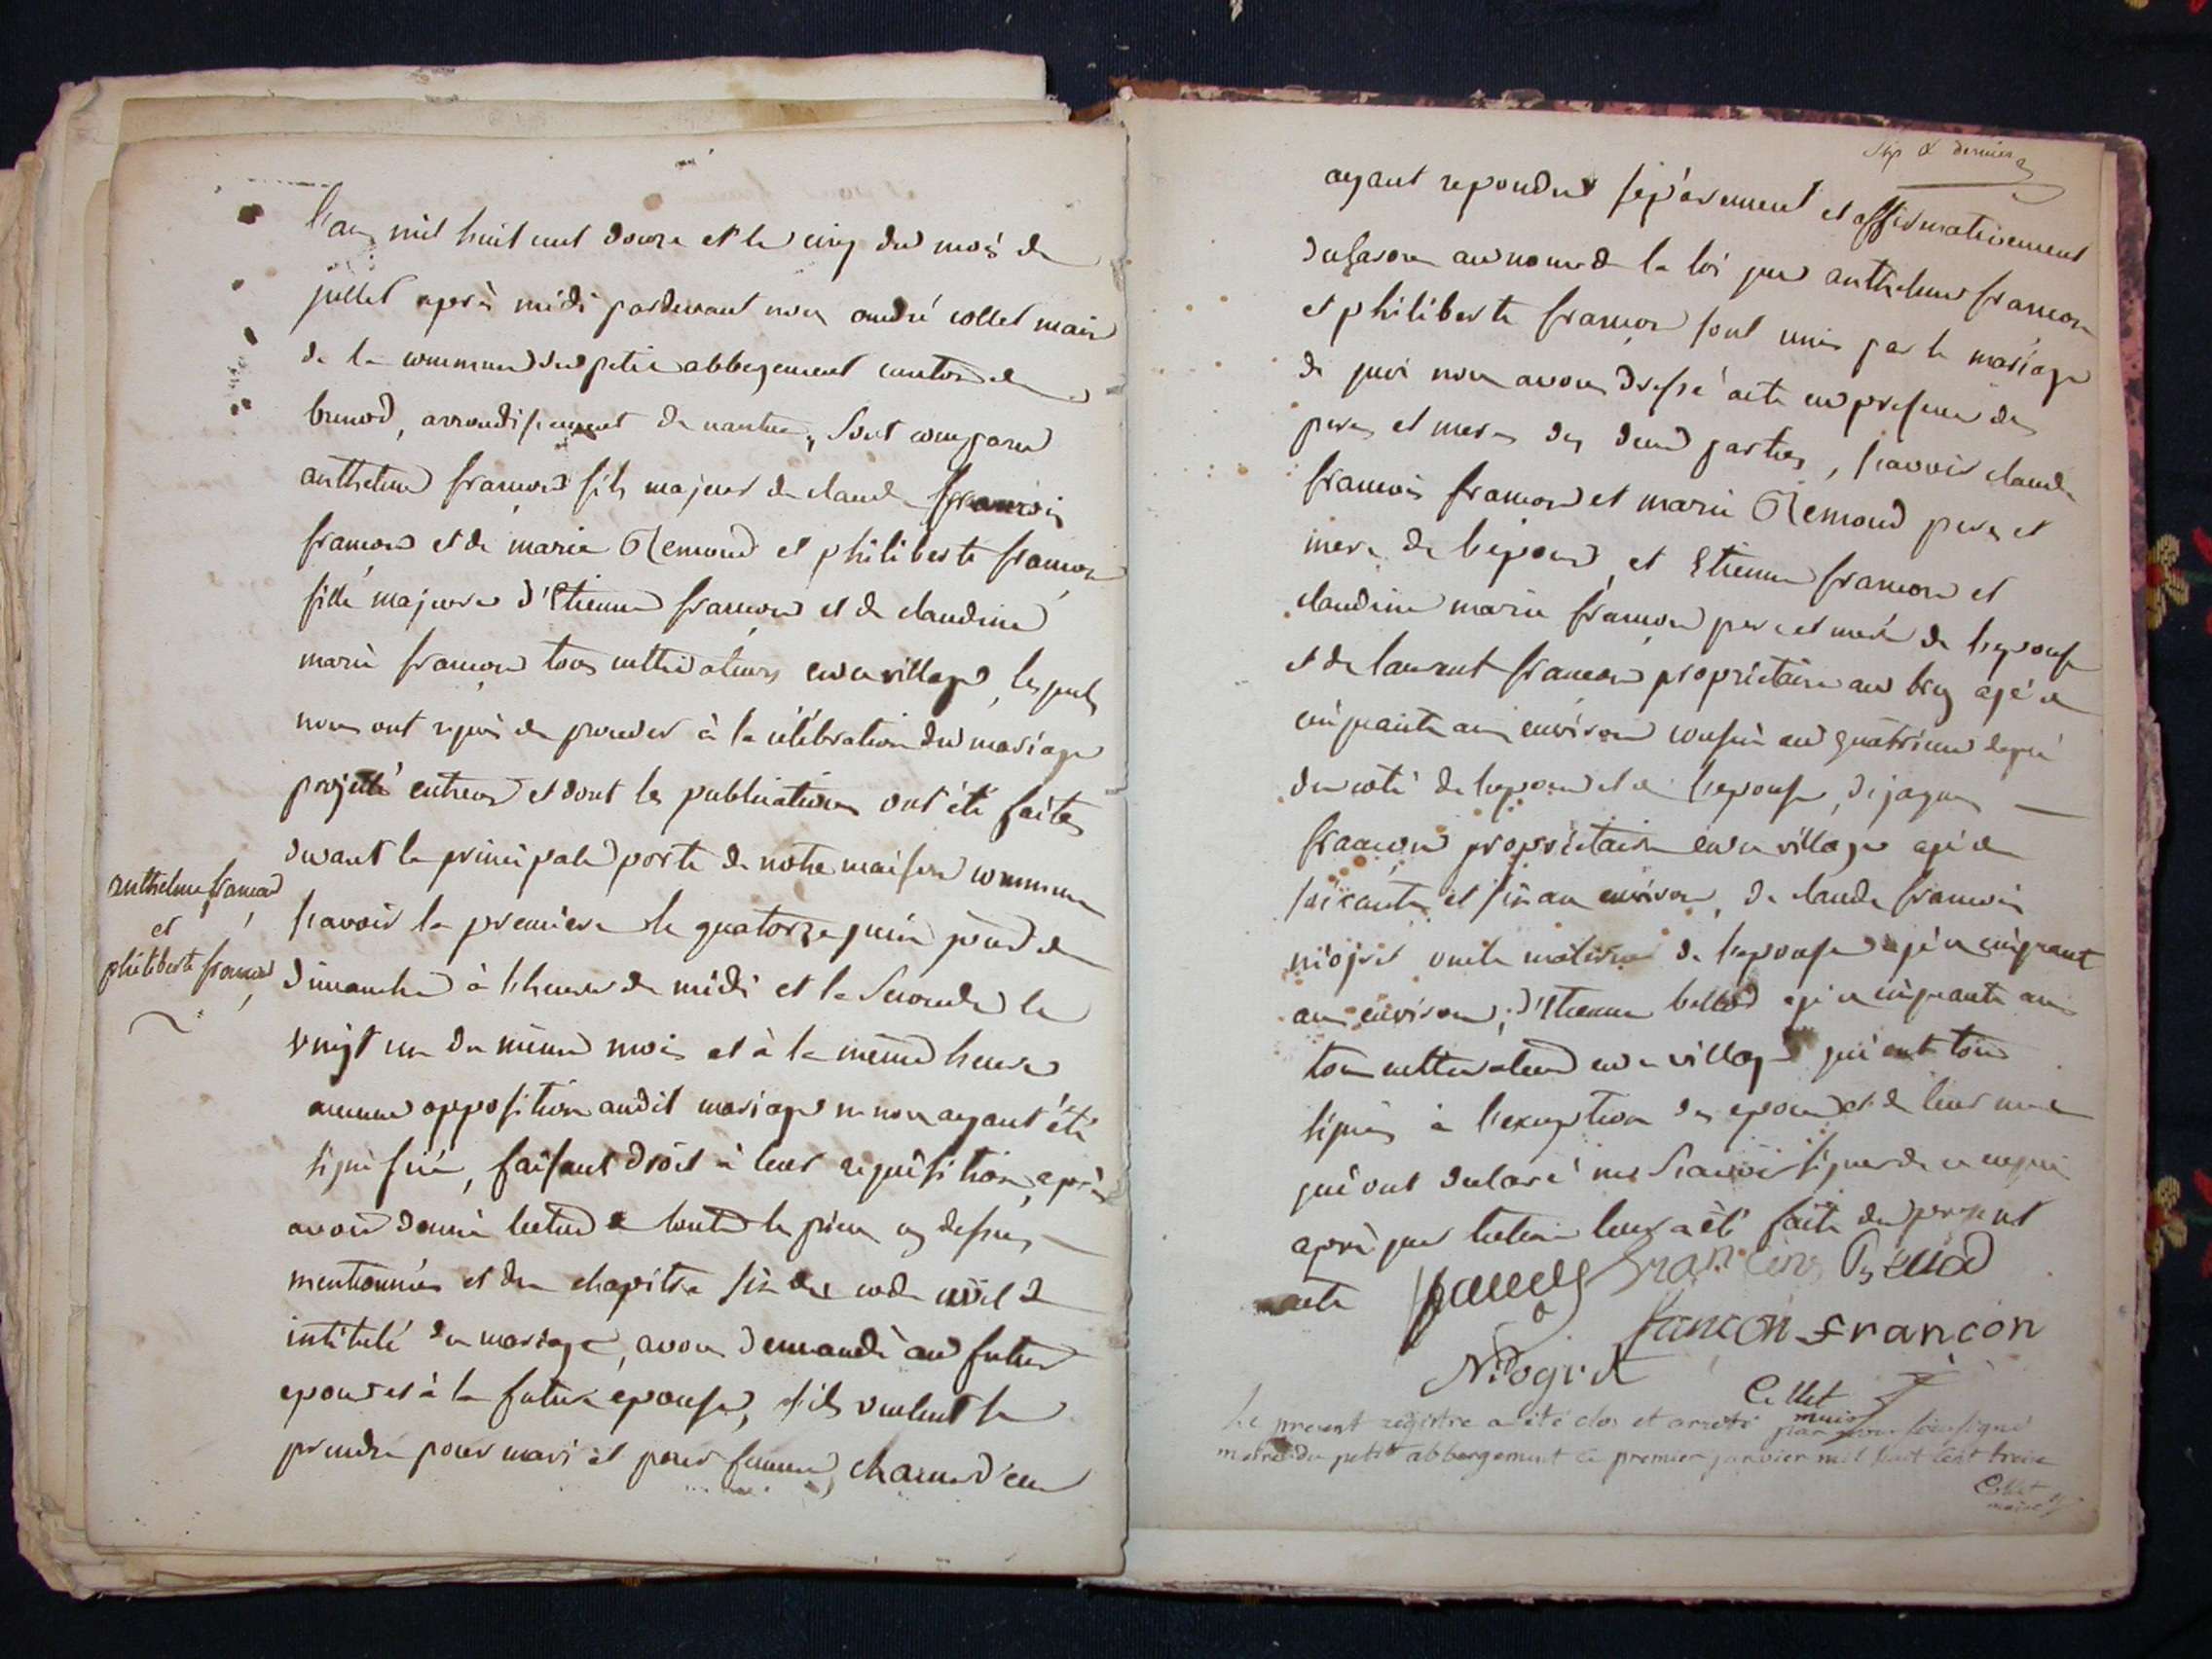 l'an mil huit cent douze et le cinq du mois de
juillet après midi pardevant nous andré collet maire
de la commune du petit abbergement canton de
brenod, arrondissement de nantua, sont comparu
anthelme françon fils majeur de claude françois
françon et de marie Remond et philiberte françon
fille majeure d'Etienne françon et de claudine
marie françon tous cultivateurs en ce village, lesquels
nous ont requis de proceder à la célébration du mariage
projetté entreux et dont les publications ont été faites
devant la principale porte de notre maison commune
sçavoir la premiere le quatorze juin jour de
dimanche à l'heure de midi et la seconde le
vingt un du même mois et à la même heure
aucune opposition audit mariage ne nous ayant été
signifiée, faisant droit à leur requisition, après
avoir donné lecture de toutes les pièces cy dessus
mentionnées et du chapitre six du code civil
intitulé du mariage, avons demandé au futur
epoux et à la future epouse, s'ils veulent se
prendre pour mari et pour femme, chacun d'eux
anthelme françon
et
philiberte françon
six & dernier
ayant repondus séparement et affirmativement
declarons au nom de la loi que anthelme françon
et philiberte françon sont unis par le mariage
de quoi nous avons dressé acte en presence des
peres et meres des deux parties, sçavoir claude
françois françon et marie Remond pere et
mere de l'epoux, et Etienne françon et
claudine marie françon pere et mere de l'epouse
et de laurent françon propriétaire au agé de
cinquante ans environ cousin au quatrieme degré
du coté de l'epoux et de l'epouse, de jaques
françon propriétaire en ce village agé de
soixante et six ans environ, de claude françois
niogret oncle maternel de l'epouse agé de cinquante
ans environ, d'Etienne ballod agé de cinquante ans
tous cultivateurs en ce village qui ont tous
signés à l'exception des epoux et de leur mere
qui ont declaré ne sçavoir signer de ce enquis
après que lecture leur a été faite du present
acte
francon francon
Niogret
Collet
maire
Le present registre a été clos et arreté par nous soussigné
maire du petit abbergement ce premier janvier mil huit cent treize
Collet
maire